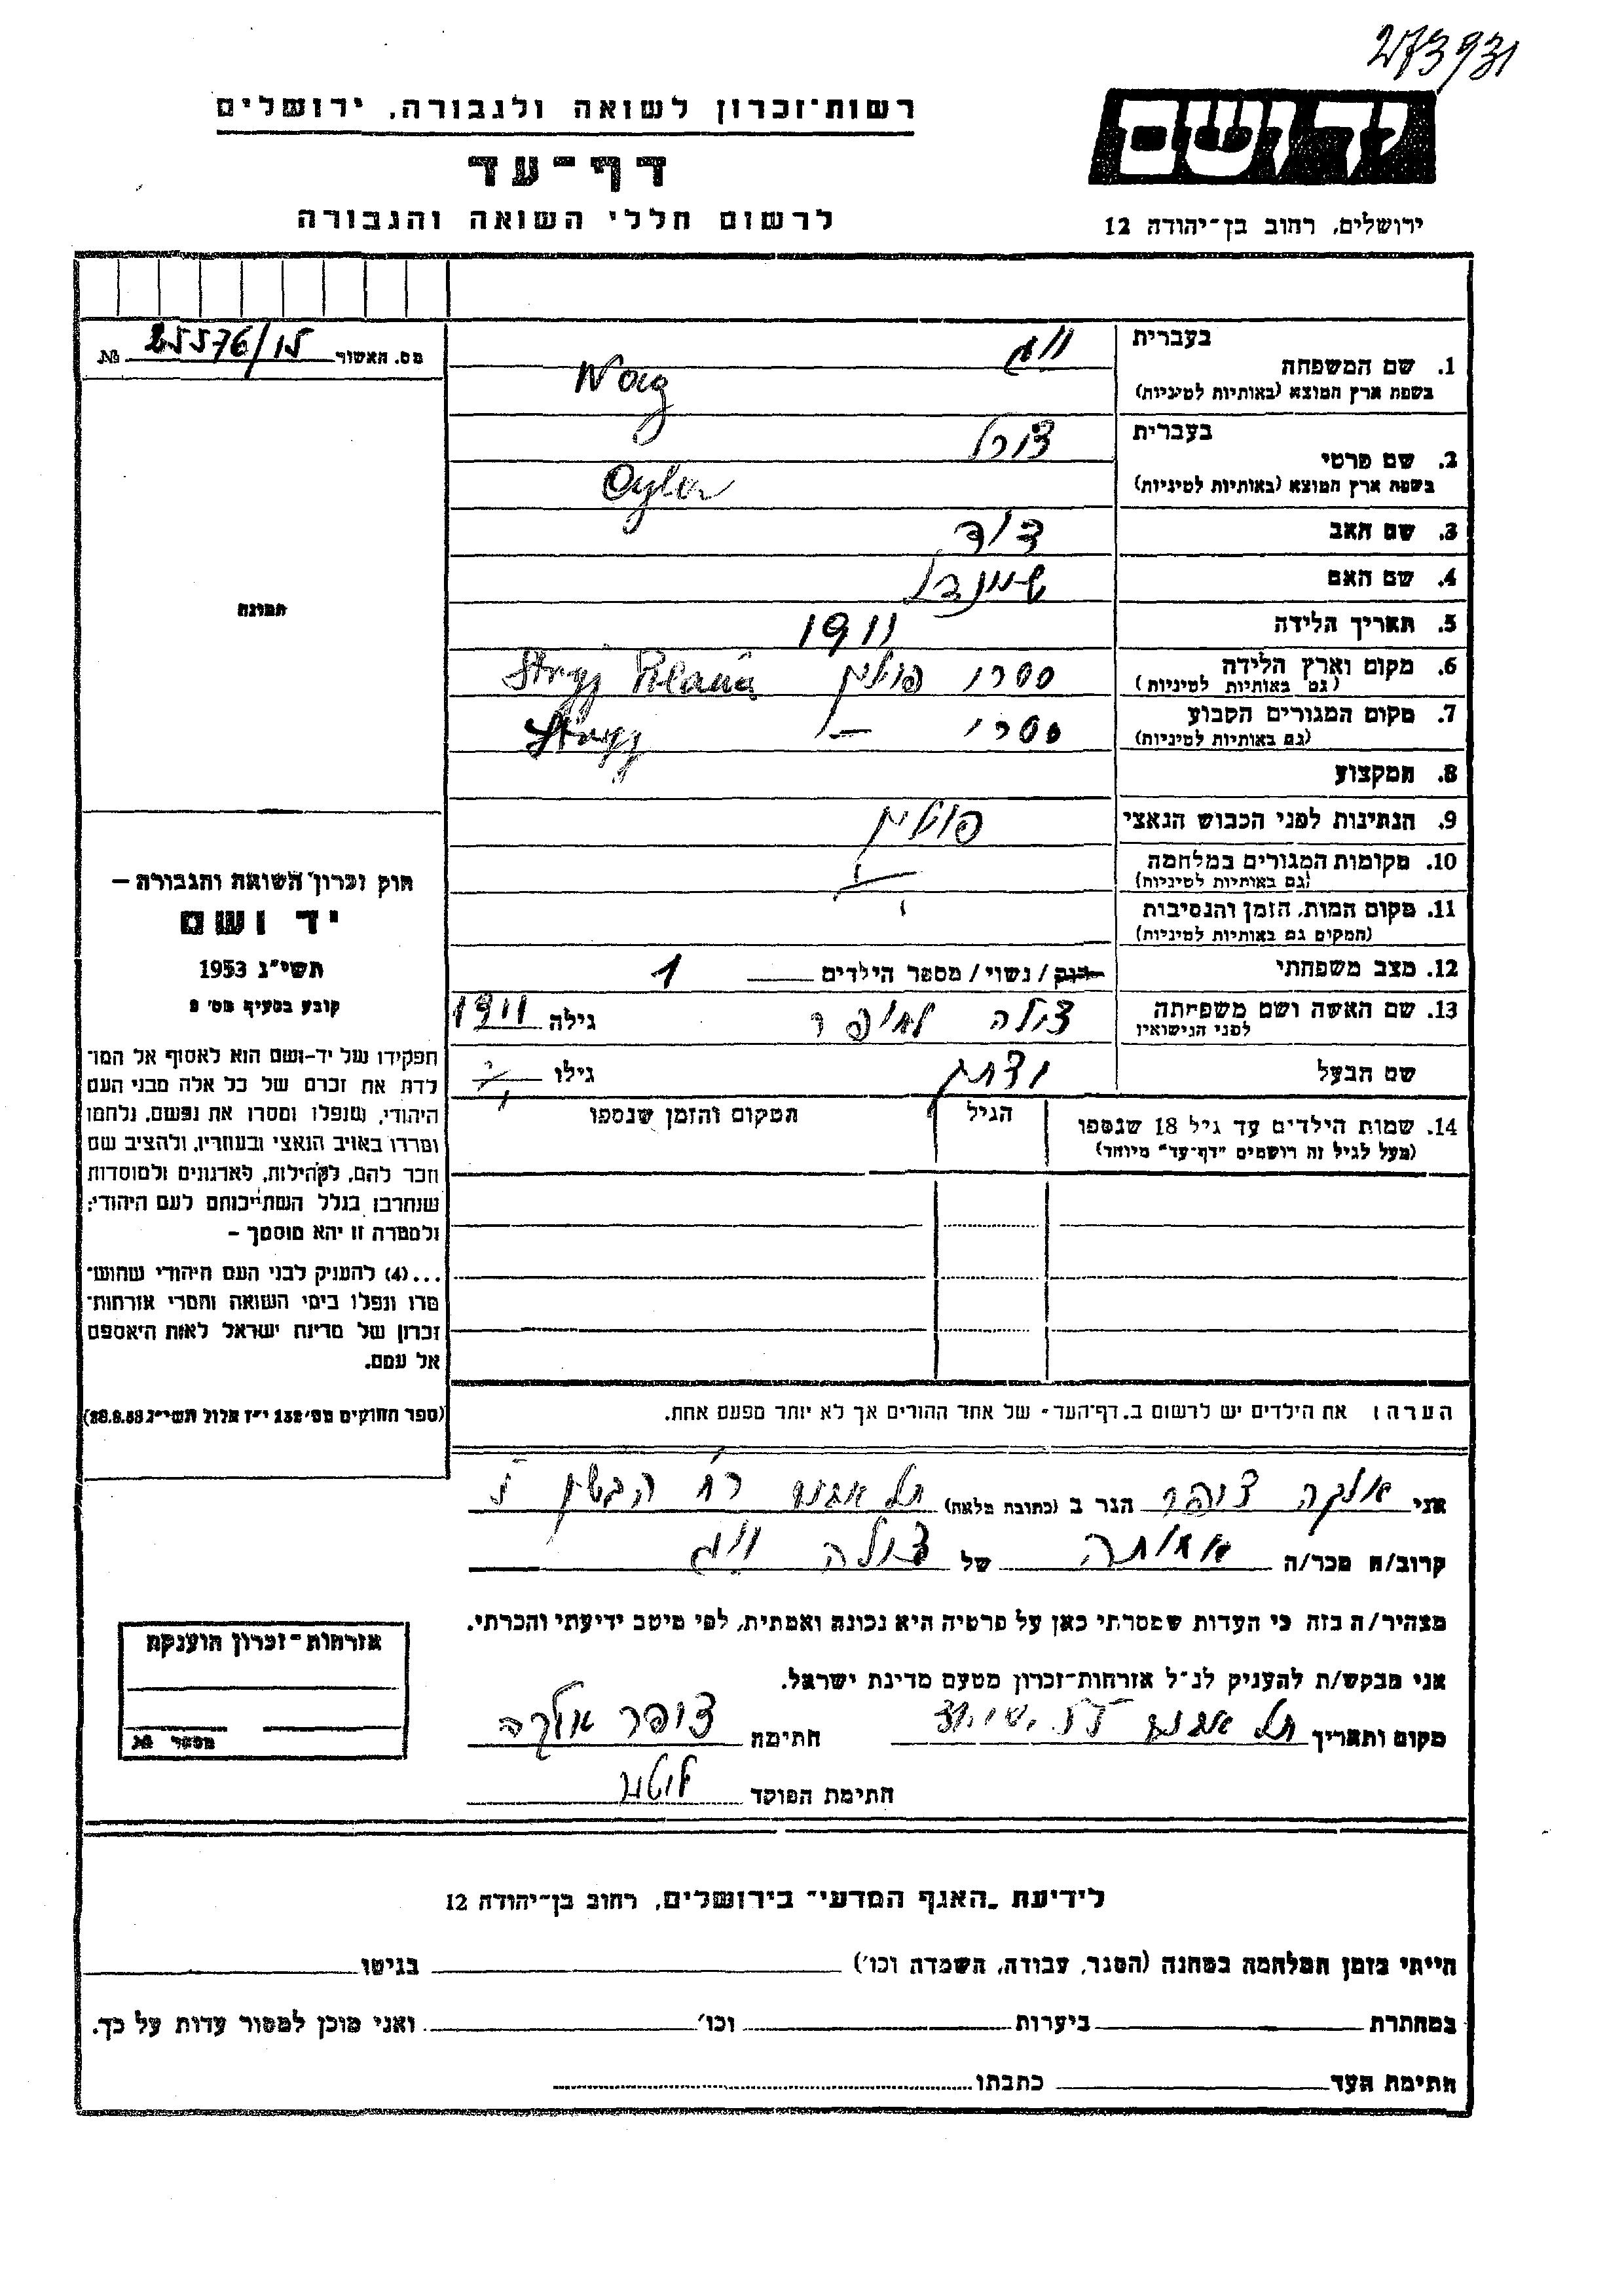 273931
רשות־זכרון לשואה ולגבורה, ירושלים
דף־עד
לרשום חללי השואה והגבורה
יד ושם
ירושלים, רחוב בן־יהודה 12
מס. האשור 25576/15 №
1. שם המשפחה
בעברית
בשפת ארץ המוצא (באותיות לטיניות)
2. שם פרטי
בעברית
בשפת ארץ המוצא (באותיות לטיניות)
3. שם האב דוד
4. שם האם
5. תאריך הלידה 1911
6. מקום וארץ הלידה סטרי פולין Stryj
(גם באותיות לטיניות)
7. מקום המגורים הקבוע סטרי Stryj
(גם באותיות לטיניות)
8. המקצוע
9. הנתינות לפני הכבוש הנאצי פולין
10. מקומות המגורים במלחמה
(גם באותיות לטיניות)
11. מקום המות, הזמן והנסיבות
(המקום גם באותיות לטיניות)
12. מצב משפחתי רוק / נשוי / מספר הילדים 1
13. שם האשה ושם משפחתה
לפני הנישואין
גילה 1911
שם הבעל גילו
14. שמות הילדים עד גיל 18 שנספו
(מעל לגיל זה רושמים "דף־עד" מיוחד)
הגיל
המקום והזמן שנספו
תמונה
חוק זכרון השואה והגבורה –
יד ושם
תשי"ג 1953
קובע בסעיף מס' 2
תפקידו של יד-ושם הוא לאסוף אל המו־
לדת את זכרם של כל אלה מבני העם
היהודי, שנפלו ומסרו את נפשם, נלחמו
ומרדו באויב הנאצי ובעוזריו, ולהציב שם
וזכר להם, לקהילות, לארגונים ולמוסדות
שנחרבו בגלל השתייכותם לעם היהודי;
ולמטרה זו יהא מוסמך –
...(4) להעניק לבני העם היהודי שהוש־
מדו ונפלו בימי השואה והמרי אזרחות־
זכרון של מדינת ישראל לאות היאספם
אל עמם.
(ספר החוקים מס' 132 י"ז אלול תשי"ג 28.8.53)
הערה: את הילדים יש לרשום ב„דף־העד" של אחד ההורים אך לא יותר מפעם אחת.
אני אלקה צופר הגר ב (כתובת מלאה) תל אביב רח'
קרוב/ה מכר/ה של
מצהיר/ה בזה כי העדות שמסרתי כאן על פרטיה היא נכונה ואמתית, לפי מיטב ידיעתי והכרתי.
אני מבקש/ת להעניק לנ"ל אזרחות־זכרון מטעם מדינת ישראל.
מקום ותאריך תל אביב חתימה צופר אלקה
חתימת הפוקד
אזרחות־זכרון הוענקה
מספר №
לידיעת „האגף המדעי" בירושלים, רחוב בן־יהודה 12
הייתי בזמן המלחמה במחנה (הסגר, עבודה, השמדה וכו') בגיטו
במחתרת ביערות וכו' ואני מוכן למסור עדות על כך.
חתימת העד כתבתו